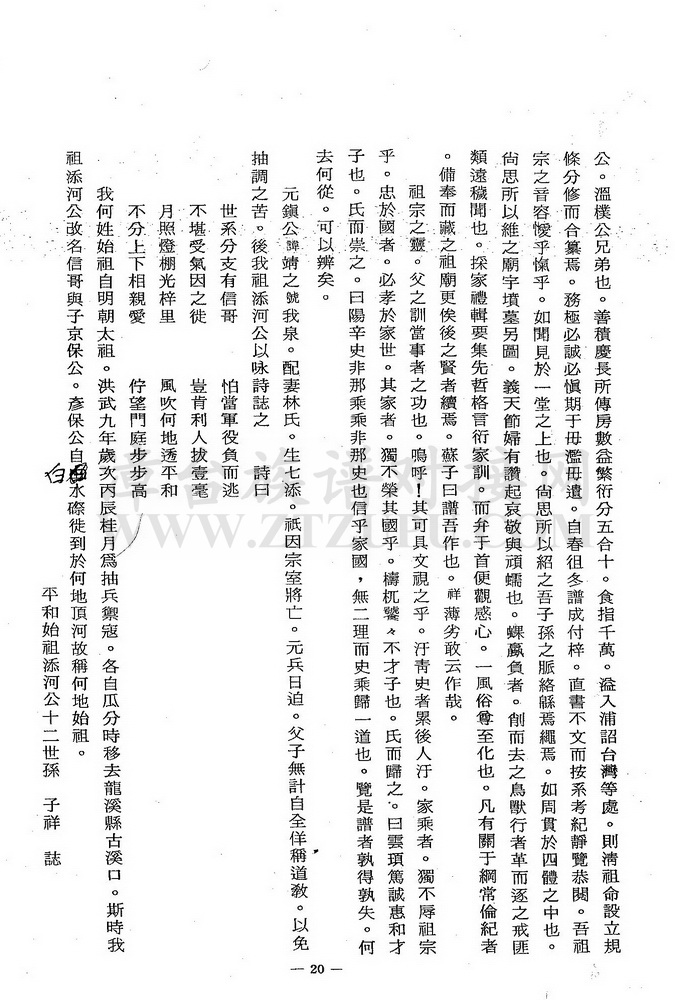 公。溫樸公兄弟也。善積慶長所傳房數益繁衍分五合十。食指千萬。溢入浦詔台灣等處。則清祖命設立規
條分修而合纂焉。務極必誠必愼期于毋濫毋遺。自春徂冬譜成付梓。直書不文而按系考紀靜覽恭閱。吾祖
宗之音容僾乎愾乎。如聞見於一堂之上也。尙思所以紹之吾子孫之脈絡緜焉繩焉。如周貫於四體之中也。
尙思所以維之廟宇墳墓另圖。義天節婦有讚起哀敬與頑蠕也。螟蠃負者。創而去之鳥獸行者革而逐之戒匪
類遠穢聞也。採家禮輯要集先哲格言衍家訓。而弁于首便觀感心。一風俗尊至化也。凡有關于綱常倫紀者
。備奉而藏之祖廟更俟後之賢者續焉。蘇子曰譜吾作也。祥薄劣敢云作哉。
祖宗之靈。父之訓當事者之功也。嗚呼！其可具文視之乎。汙靑史者累後人汙。家乘者。獨不辱祖宗
乎。忠於國者。必孝於家世。其家者。獨不榮其國乎。檮杌饕々不才子也。氏而歸之。曰雲瑣篤誠惠和才
子也。氏而崇之。曰陽辛史非那乘乘非那史也信乎家國，無二理而史乘歸一道也。覽是譜者孰得孰失。何
去何從。可以辨矣。
元鎭公諱靖之號我泉。配妻林氏。生七添。祇因宗室將亡。元兵日迫。父子無計自全佯稱道敎。以免
抽調之苦。後我祖添河公以咏詩誌之 詩曰
世系分支有信哥 怕當軍役負而逃
不堪受氣因之徙 豈肯利人拔壹毫
月照燈棚光梓里 風吹何地透平和
不分上下相親愛 佇望門庭步步高
我何姓始祖自明朝太祖。洪武九年歲次丙辰桂月爲抽兵禦寇。各自瓜分時移去龍溪縣古溪口。斯時我
祖添河公改名信哥與子京保公。彥保公自白水磜徙到於何地頂河故稱何地始祖。
平和始祖添河公十二世孫 子祥 誌
— 20 —
www.ztzupu.com